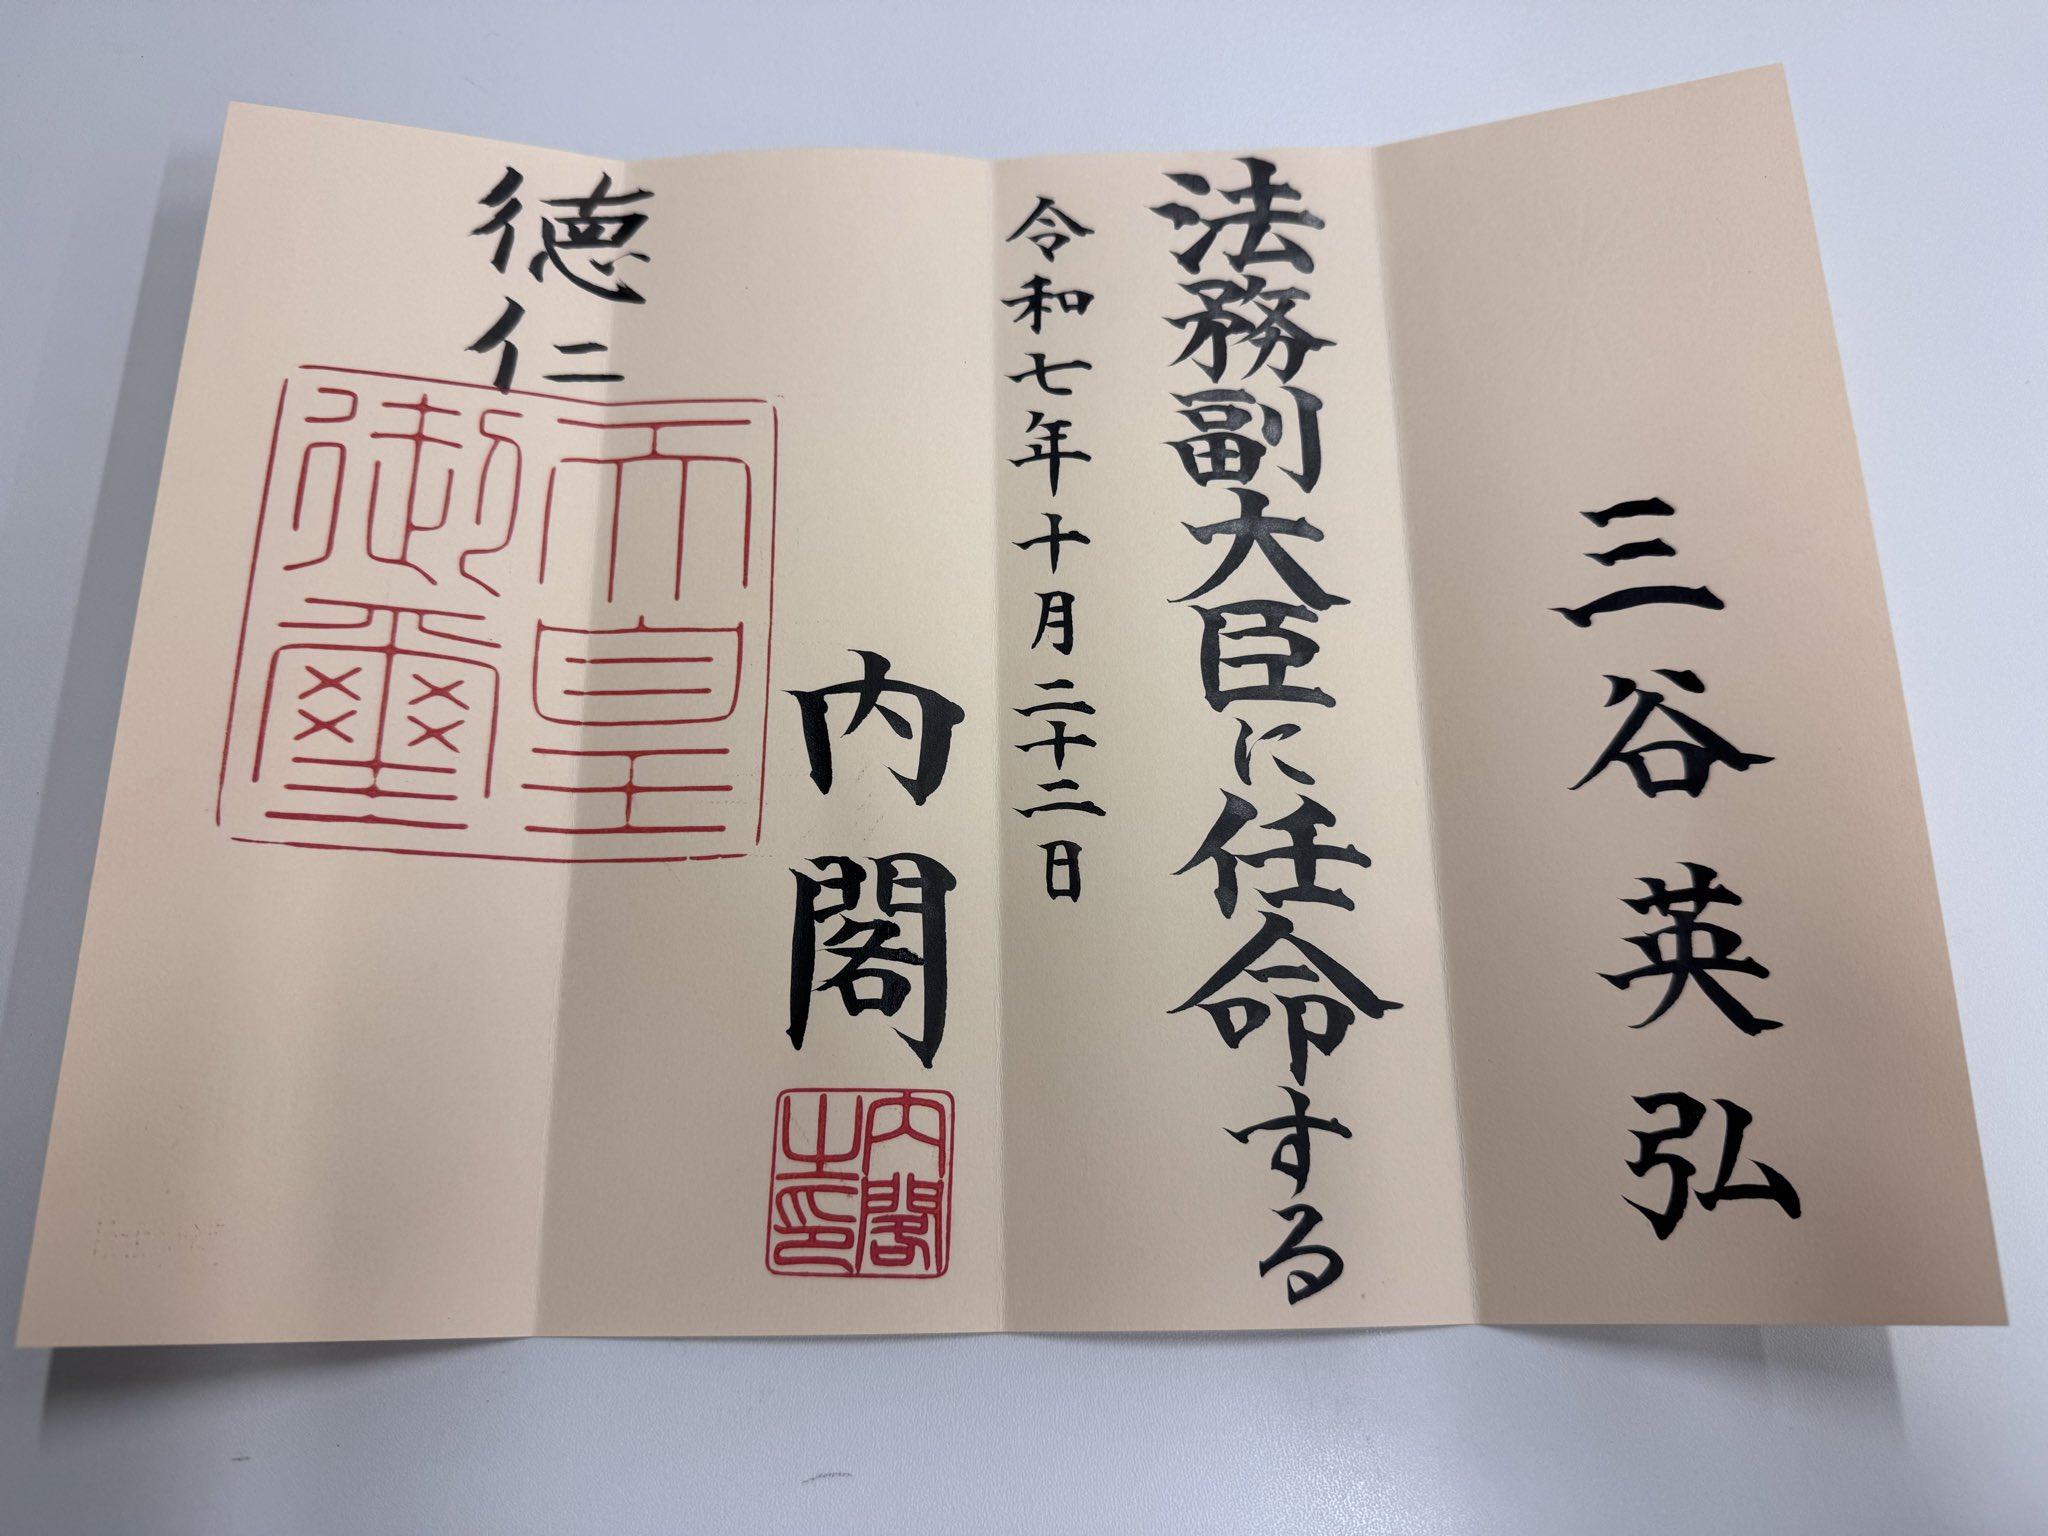 三谷英弘
法務副大臣に任命する
令和七年十月二十二日
内閣
内閣之印
徳仁
天皇御璽